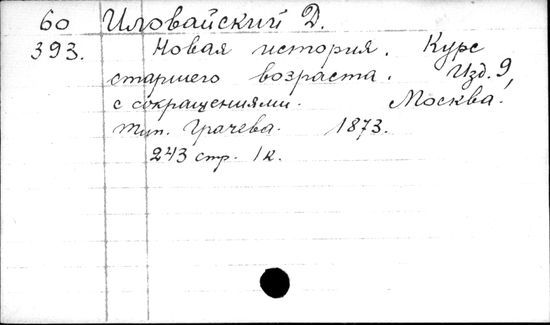 60 Иловайский Д.
393. Новая история. Курс
старшего возраста. Изд. 9,
с сокращениями. Москва,
тип. Грачева. 1873.
243 стр. 1к.